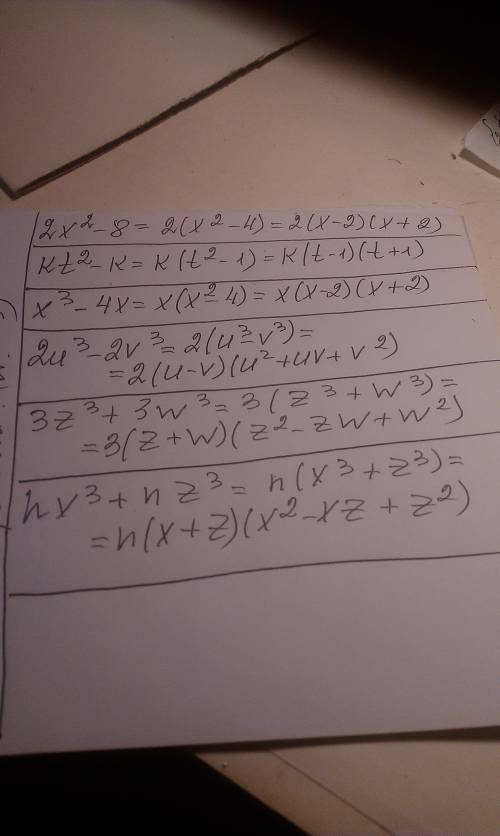 2x² - 8 = 2(x² - 4) = 2(x-2)(x+2)
кt² - к = к(t² - 1) = к(t-1)(t+1)
x³ - 4x = x(x² - 4) = x(x-2)(x+2)
2u³ - 2v³ = 2(u³ - v³) =
= 2(u-v)(u² + uv + v²)
3z³ + 3w³ = 3(z³ + w³) =
= 3(z+w)(z² - zw + w²)
nx³ + nz³ = n(x³ + z³) =
= n(x+z)(x² - xz + z²)